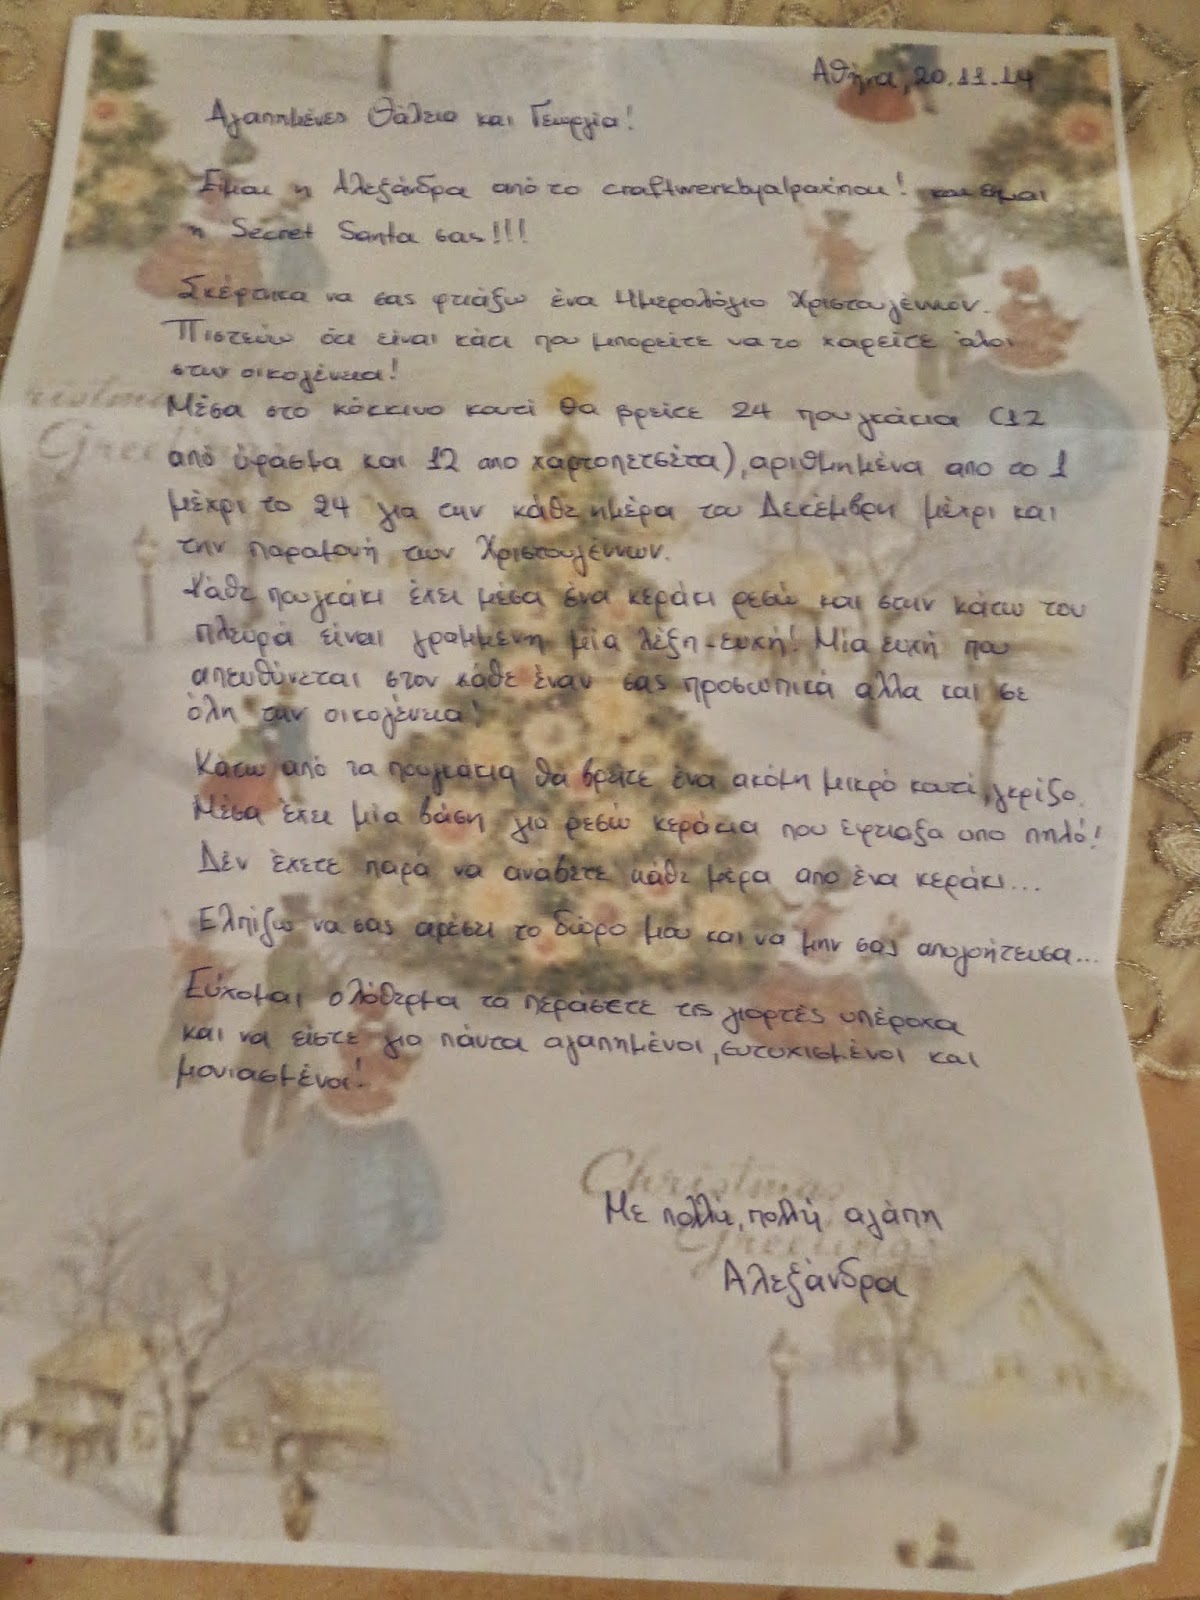 Αθήνα, 20.11.14
Αγαπημένες Θάλεια και Γεωργία!
Είμαι η Αλεξάνδρα από το craftwerkbyalpakinou! και είμαι
η Secret Santa σας!!!
Σκέφτηκα να σας φτιάξω ένα Ημερολόγιο Χριστουγέννων.
Πιστεύω ότι είναι κάτι που μπορείτε να το χαρείτε όλοι
στην οικογένεια!
Μέσα στο κόκκινο κουτί θα βρείτε 24 πουγκάκια (12
από ύφασμα και 12 απο χαρτοπετσέτα), αριθμημένα απο το 1
μέχρι το 24 για την κάθε ημέρα του Δεκέμβρη μέχρι και
την παραμονή των Χριστουγέννων.
Κάθε πουγκάκι έχει μέσα ένα κεράκι ρεσώ και στην κάτω του
πλευρά είναι γραμμένη μία λέξη-ευχή! Μία ευχή που
απευθύνεται στον κάθε έναν σας προσωπικά αλλα και σε
όλη την οικογένεια!
Κάτω από τα πουγκάκια θα βρείτε ένα ακόμη μικρό κουτί, γκρίζο.
Μέσα έχει μία βάση για ρεσώ κεράκια που έφτιαξα απο πηλό!
Δέν έχετε παρά να ανάβετε κάθε μέρα απο ένα κεράκι...
Ελπίζω να σας αρέσει το δώρο μου και να μην σας απογοήτευσα...
Εύχομαι ολόθερμα να περάσετε τις γιορτές υπέροχα
και να είστε για πάντα αγαπημένοι, ευτυχισμένοι και
μονιασμένοι!
Christmas
Με πολλή, πολλή αγάπη
Greetings
Αλεξάνδρα